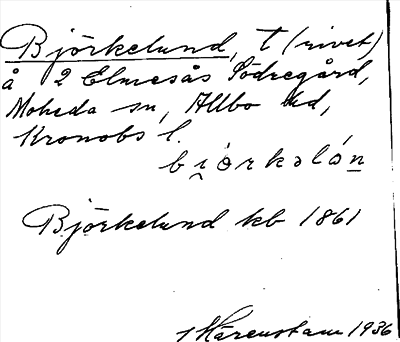 Björkelund, t (rivet)
å 2 Elmesås Södregård,
Moheda sn, Allbo hd,
Kronobs l.
bi̯örkəlón
Björkelund kb 1861
Härenstam 1936